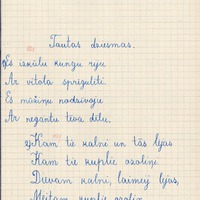 Tautas dziesmas.
Es izkūlu kungu riju
Ar vītola spriguliti.
Es mūžiņu nodzīvoju
Ar neganta tēva dēlu.
2) Kam tie kalni un tās lejas
Kam tie kuplie ozoliņi
Dievam kalni, laimei lejas,
Meitām kuplie ozoliņ